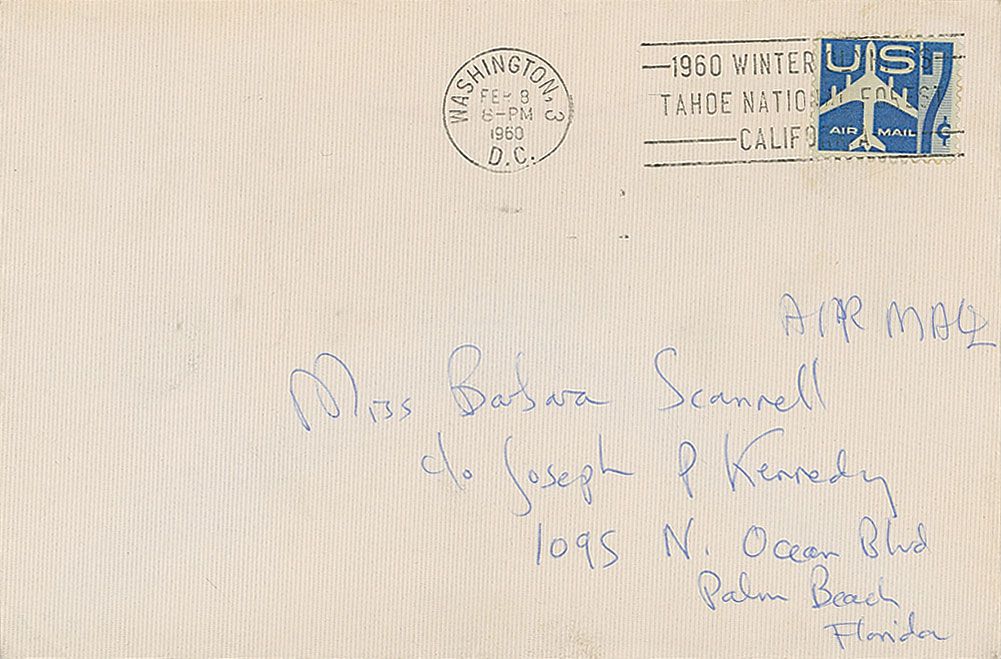 WASHINGTON, 3
FEB 8
6-PM
1960
D.C.
1960 WINTER OLYMPICS
TAHOE NATIONAL FOREST
CALIFORNIA
US 7¢
AIR MAIL
AIR MAIL
Miss Barbara Scannell
c/o Joseph P Kennedy
1095 N. Ocean Blvd
Palm Beach
Florida